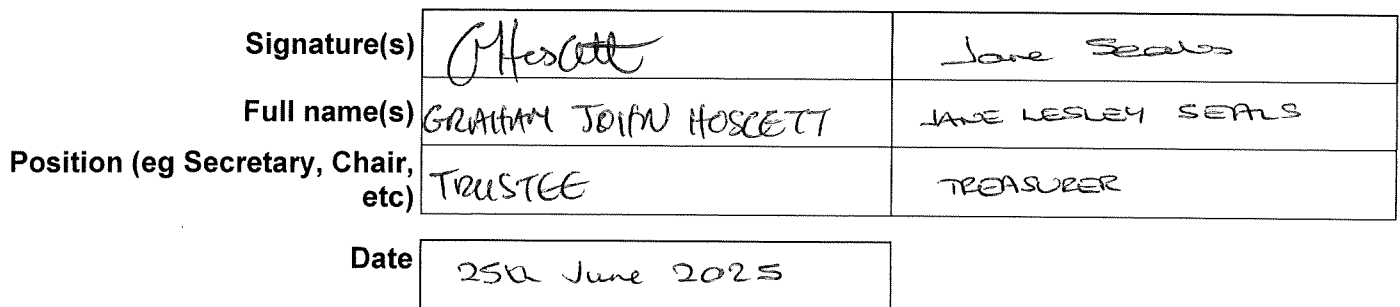 Signature(s) Jane Seals
Full name(s) GRAHAM JOHN HOSCETT JANE LESLEY SEALS
Position (eg Secretary, Chair,
etc) TRUSTEE TREASURER
Date 25th June 2025